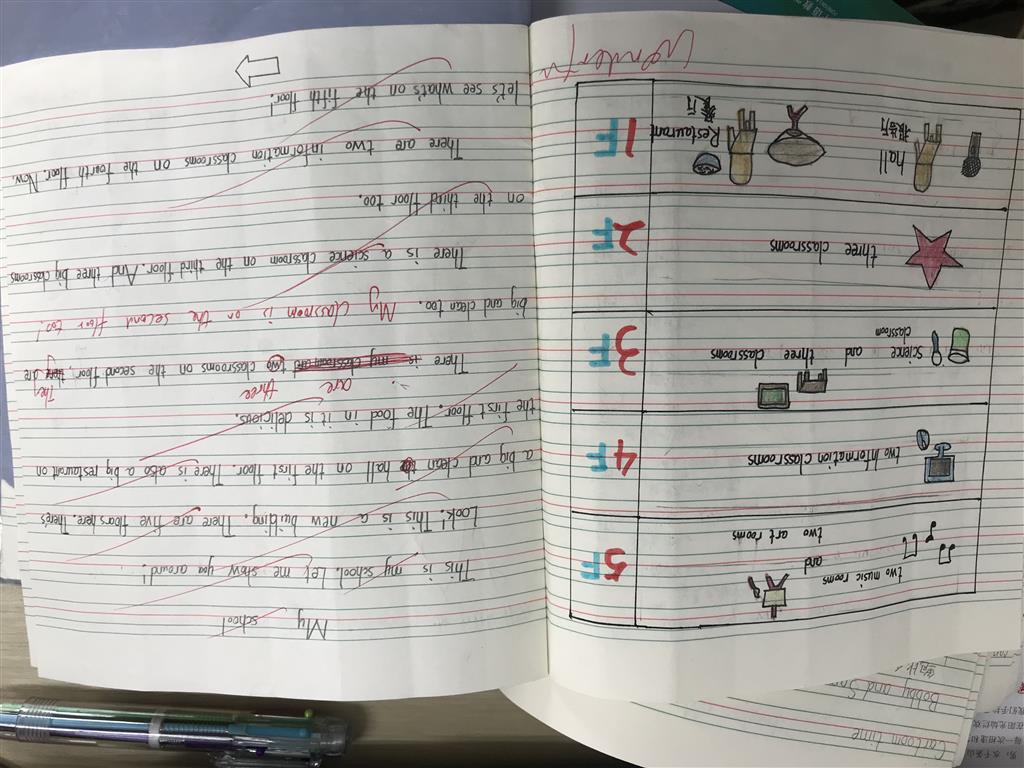 Cartoon time
Bobby and
two music rooms
and
two art rooms
5F
two Information classrooms
4F
Science and three classrooms
classroom
3F
three classrooms
2F
hall
Restaurant
餐厅
1F
My school
This is my school. Let me show you around!
Look! This is a new building. There are five floors here. There's
a big and clean hall on the first floor. There is also a big restaurant on
the first floor. The food in it is delicious.
are three They
There is my classroom and two classrooms on the second floor, they are
big and clean too. My classroom is on the second floor too!
There is a science classroom on the third floor. And three big classrooms
on the third floor too.
There are two information classrooms on the fourth floor. Now,
let's see what's on the fifth floor!